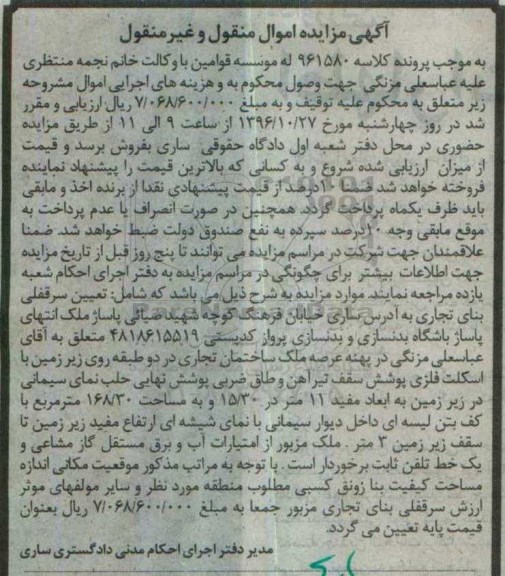 آگهی مزایده اموال منقول و غیر منقول
به موجب پرونده کلاسه ۹۶۱۵۸۰ له موسسه قوامین با وکالت خانم نجمه منتظری
علیه عباسعلی مزنگی جهت وصول محکوم به و هزینه های اجرایی اموال مشروحه
زیر متعلق به محکوم علیه توقیف و به مبلغ ۷/۰۶۸/۶۰۰/۰۰۰ ریال ارزیابی و مقرر
شد در روز چهارشنبه مورخ ۱۳۹۶/۱۰/۲۷ از ساعت ۹ الی ۱۱ از طریق مزایده
حضوری در محل دفتر شعبه اول دادگاه حقوقی ساری بفروش برسد و قیمت
از میزان ارزیابی شده شروع و به کسانی که بالاترین قیمت را پیشنهاد نماینده
فروخته خواهد شد ضمنا ۱۰درصد از قیمت پیشنهادی نقدا از برنده اخذ و مابقی
باید ظرف یکماه پرداخت گردد همچنین در صورت انصراف یا عدم پرداخت به
موقع مابقی وجه ۱۰درصد سپرده به نفع صندوق دولت ضبط خواهد شد. ضمنا
علاقمندان جهت شرکت در مراسم مزایده می توانند تا پنج روز قبل از تاریخ مزایده
جهت اطلاعات بیشتر برای چگونگی در مراسم مزایده به دفتر اجرای احکام شعبه
یازده مراجعه نمایند. موارد مزایده به شرح ذیل می باشد که شامل: تعیین سرقفلی
بنای تجاری به آدرس ساری خیابان فرهنگ کوچه شهید ضیائی پاساژ ملک انتهای
پاساژ باشگاه بدنسازی و بدنسازی پرواز کدپستی ۴۸۱۸۶۱۵۵۱۹ متعلق به آقای
عباسعلی مزنگی در پهنه عرصه ملک ساختمان تجاری در دو طبقه روی زیر زمین با
اسکلت فلزی پوشش سقف تیرآهن و طاق ضربی پوشش نهایی حلب نمای سیمانی
در زیر زمین به ابعاد مفید ۱۱ متر در ۱۵/۳۰ و به مساحت ۱۶۸/۳۰ مترمربع با
کف بتن لیسه ای داخل دیوار سیمانی با نمای شیشه ای ارتفاع مفید زیر زمین تا
سقف زیر زمین ۳ متر . ملک مزبور از امتیازات آب و برق مستقل گاز مشاعی و
یک خط تلفن ثابت برخوردار است . با توجه به مراتب مذکور موقعیت مکانی اندازه
مساحت کیفیت بنا زونق کسبی مطلوب منطقه مورد نظر و سایر مولفهای موثر
ارزش سرقفلی بنای تجاری مزبور جمعا به مبلغ ۷/۰۶۸/۶۰۰/۰۰۰ ریال بعنوان
قیمت پایه تعیین می گردد.
مدیر دفتر اجرای احکام مدنی دادگستری ساری